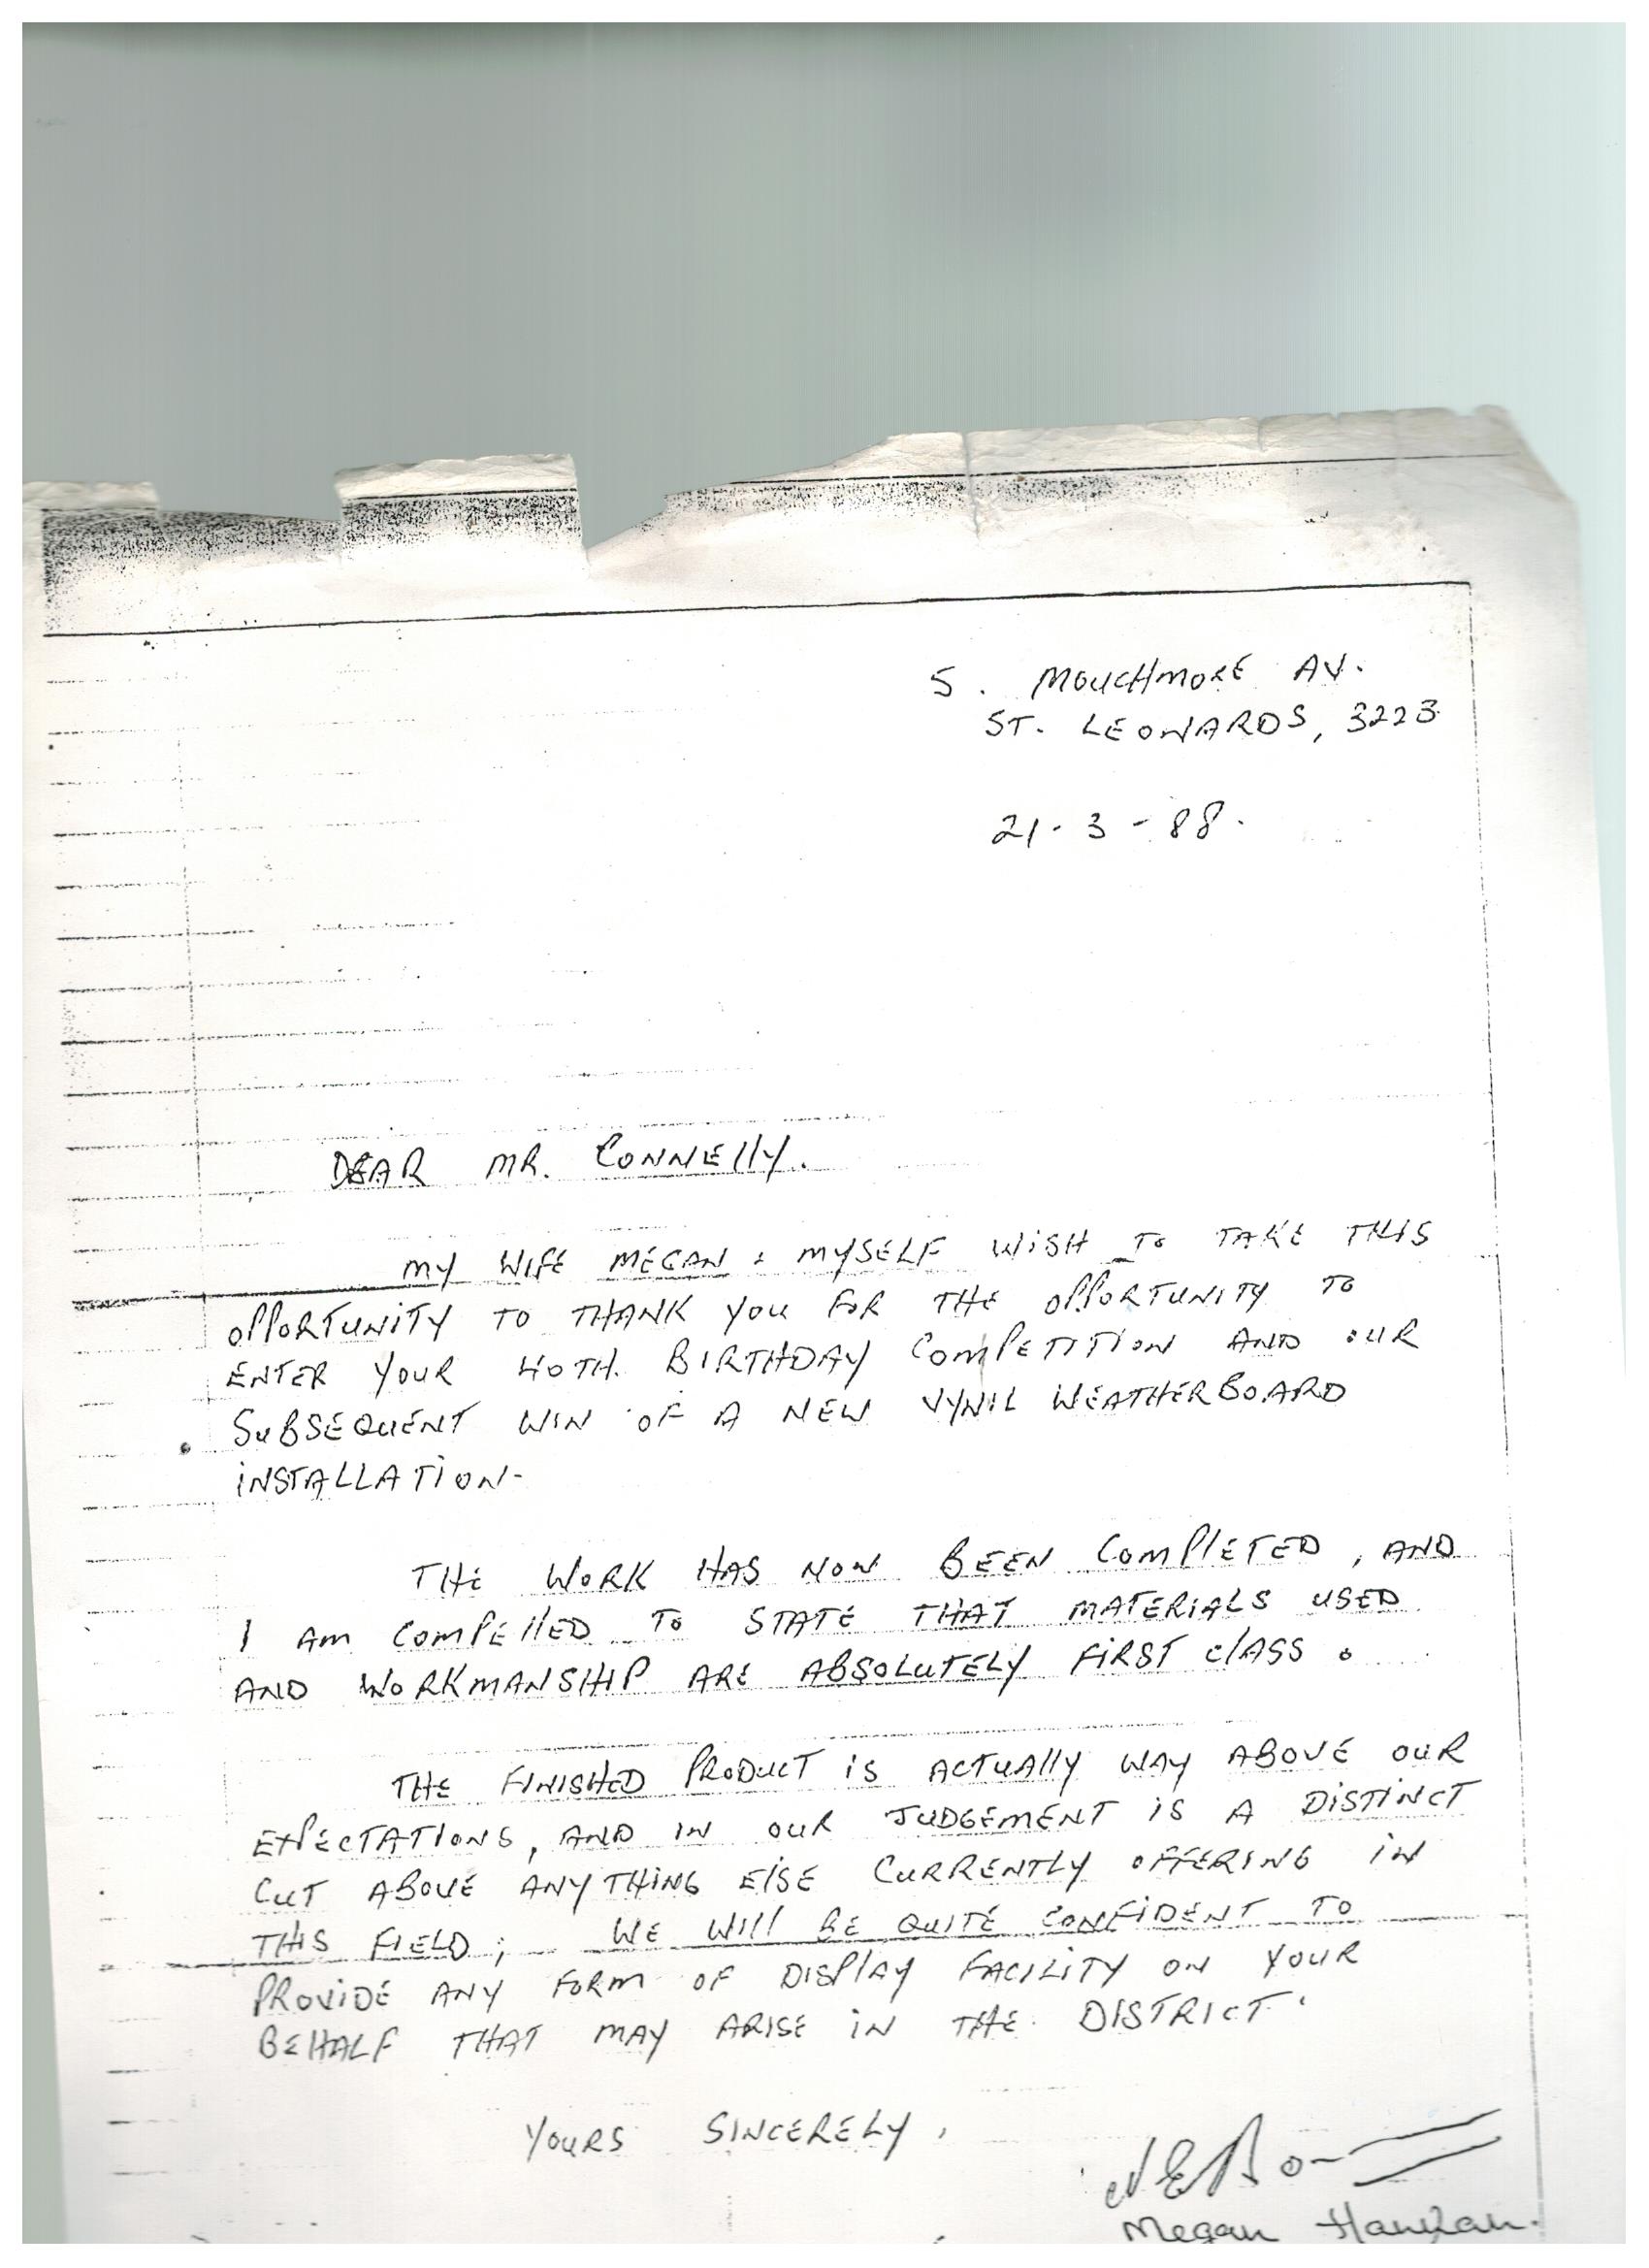 5. MOUCHMORE AV.
ST. LEONARDS, 3223
21-3-88.
DEAR MR. CONNELLY.
MY WIFE MEGAN & MYSELF WISH TO TAKE THIS
OPPORTUNITY TO THANK YOU FOR THE OPPORTUNITY TO
ENTER YOUR 40TH. BIRTHDAY COMPETITION AND OUR
SUBSEQUENT WIN OF A NEW VYNIL WEATHERBOARD
INSTALLATION.
THE WORK HAS NOW BEEN COMPLETED, AND
I AM COMPELLED TO STATE THAT MATERIALS USED
AND WORKMANSHIP ARE ABSOLUTELY FIRST CLASS.
THE FINISHED PRODUCT IS ACTUALLY WAY ABOVE OUR
EXPECTATIONS, AND IN OUR JUDGEMENT IS A DISTINCT
CUT ABOVE ANYTHING ELSE CURRENTLY OFFERING IN
THIS FIELD; WE WILL BE QUITE CONFIDENT TO
PROVIDE ANY FORM OF DISPLAY FACILITY ON YOUR
BEHALF THAT MAY ARISE IN THE DISTRICT.
YOURS SINCERELY,
Megan